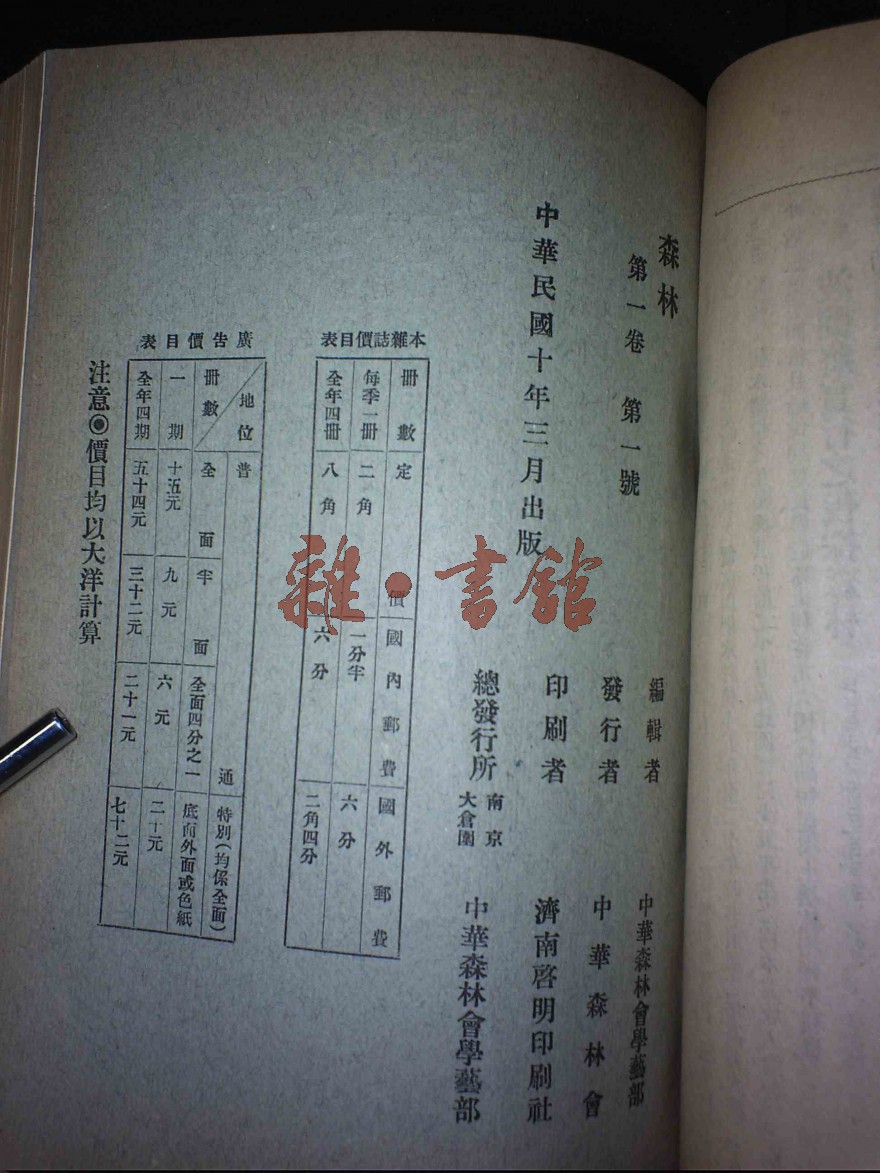 森林
第一卷 第一號
中華民國十年三月出版
編輯者 中華森林會學藝部
發行者 中華森林會
印刷者 濟南啓明印刷社
總發行所 南京大倉園 中華森林會學藝部
本雜誌價目表
冊數 定價 國內郵費 國外郵費
每季一冊 二角 一分半 六分
全年四冊 八角 六分 二角四分
廣告價目表
地位 普通 特別(均係全面)
冊數 全面 半面 全面四分之一 底面外面或色紙
一期 十五元 九元 六元 二十元
全年四期 五十四元 三十二元 二十一元 七十二元
注意◉價目均以大洋計算
雜·書館